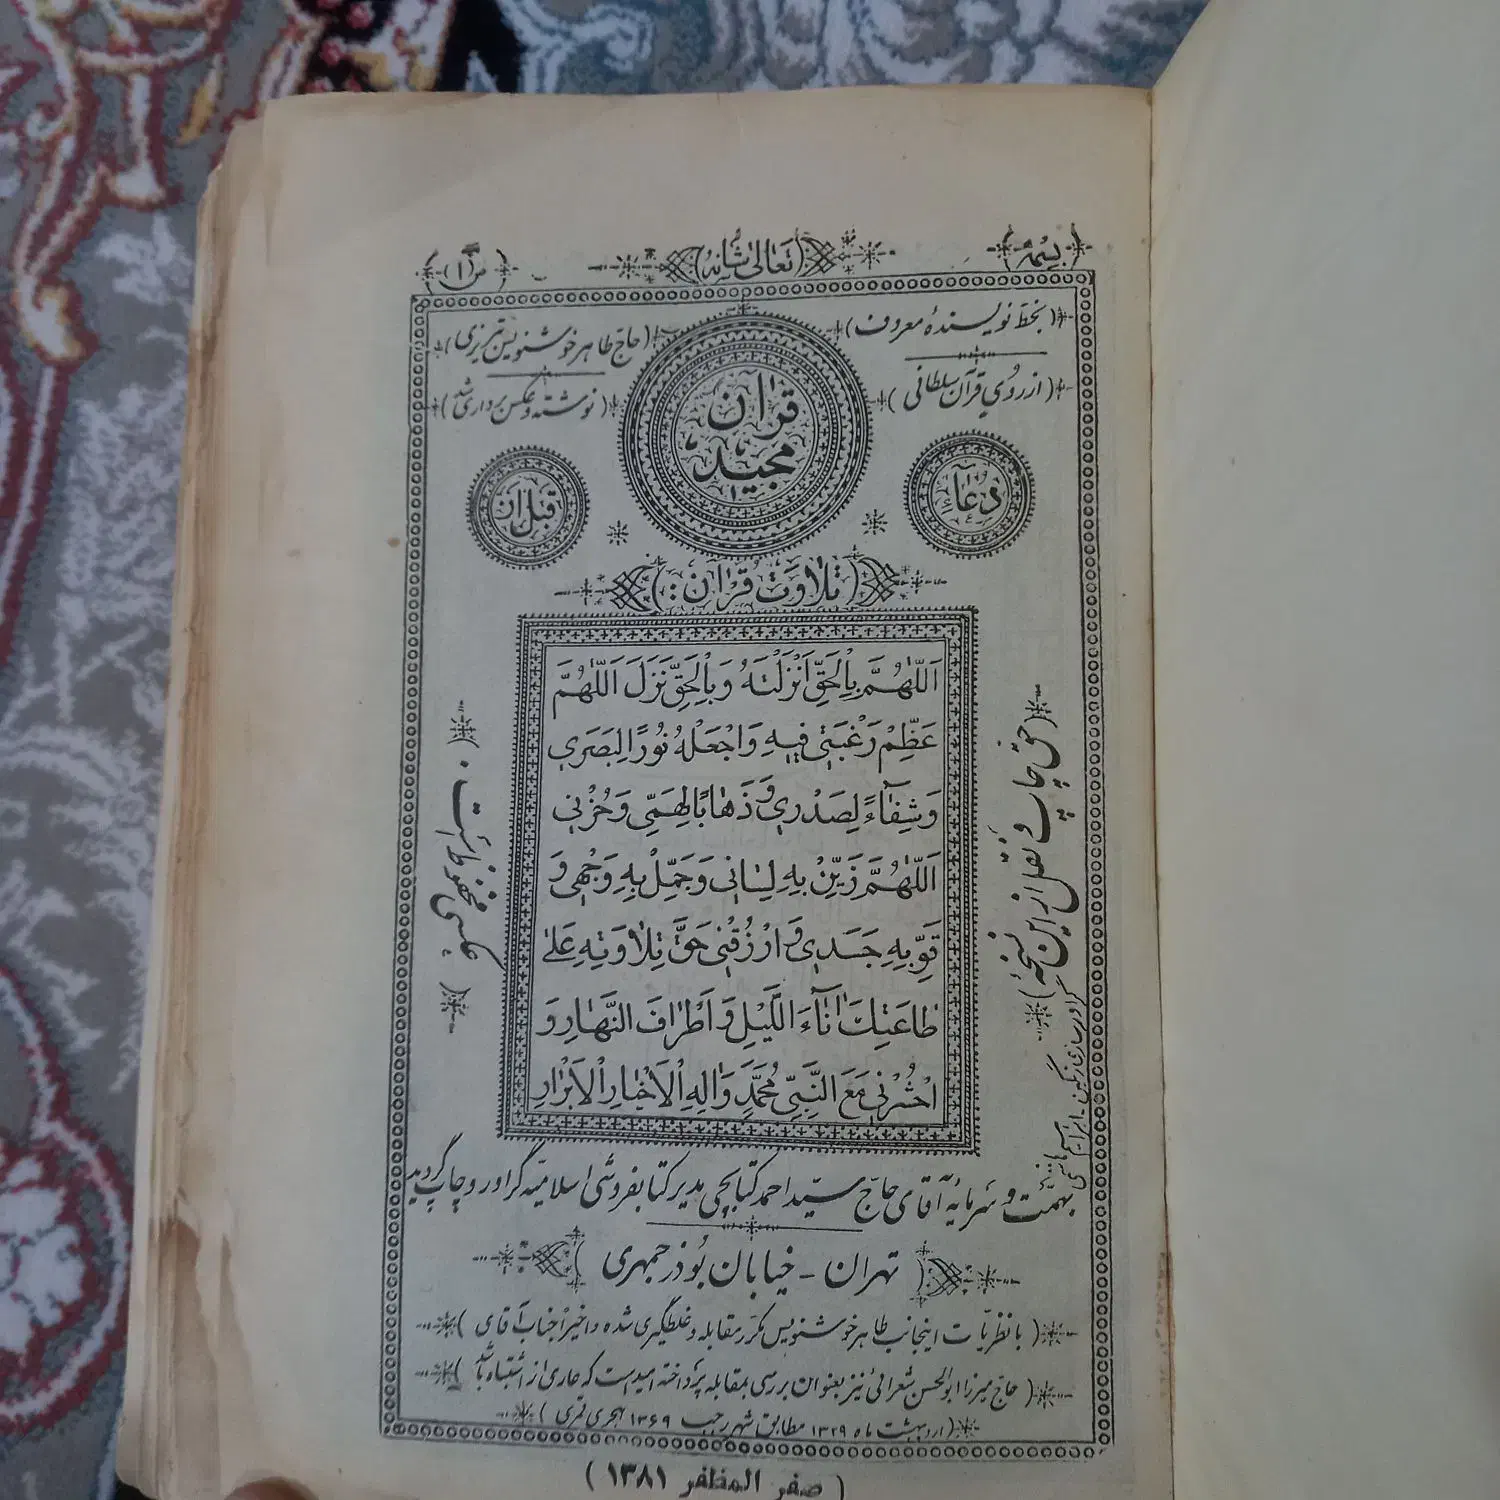 (بسمه) (تعالی شانه) (ص ۱)
(بخط نویسندهٔ معروف) (حاج طاهر خوشنویس تبریزی)
(از روی قرآن سلطانی) (نوشته و عکس برداری شد)
قرآن
مجید
دعآء
قبل از
(تلاوت قران:)
اَللّٰهُمَّ بِالْحَقِّ اَنْزَلْتَهُ وَبِالْحَقِّ نَزَلَ اَللّٰهُمَّ
عَظِّمْ رَغْبَتٖى فٖيهِ وَاجْعَلْهُ نُورًا لِبَصَرٖى
وَشِفَآءً لِصَدْرٖى وَذَهٰابًا لِهَمّٖى وَحُزْنٖى
اَللّٰهُمَّ زَيِّنْ بِهِ لِسٰانٖى وَجَمِّلْ بِهِ وَجْهٖى وَ
قَوِّ بِهِ جَسَدٖى وَارْزُقْنٖى حَقَّ تِلٰاوَتِهِ عَلىٰ
طٰاعَتِكَ اٰنٰآءَ اللَّيْلِ وَاَطْرٰافَ النَّهٰارِ وَ
احْشُرْنٖى مَعَ النَّبِىِّ مُحَمَّدٍ وَاٰلِهِ الْاَخْيٰارِ الْاَبْرٰارِ
(حق چاپ و نقل از این نسخهٔ)
عکسی محفوظ است.
گراورسازی رنگین - ابراهیم
بهمّت و سرمایهٔ آقای حاج سیّد احمد کتابچی مدیر کتابفروشی اسلامیّه گراور و چاپ گردید
(تهران - خیابان بوذرجمهری)
(با نظریّات اینجانب طاهر خوشنویس مکرّر مقابله و غلطگیری شده و اخیراً جناب آقای)
(حاج میرزا ابوالحسن شعرانی نیز بعنوان بررسی بمقابله پرداخته امید است که عاری از اشتباه باشد)
(اردیبهشت ماه ۱۳۲۹ مطابق شهر رجب ۱۳۶۹ هجری قمری)
(صفر المظفر ۱۳۸۱)